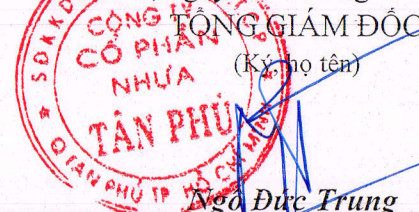 TỔNG GIÁM ĐỐC
(Ký, họ tên)
SĐKKD
CÔNG TY
CỔ PHẦN
NHỰA
TÂN PHÚ
Q.TÂN PHÚ TP HỒ CHÍ MINH
Ngô Đức Trung